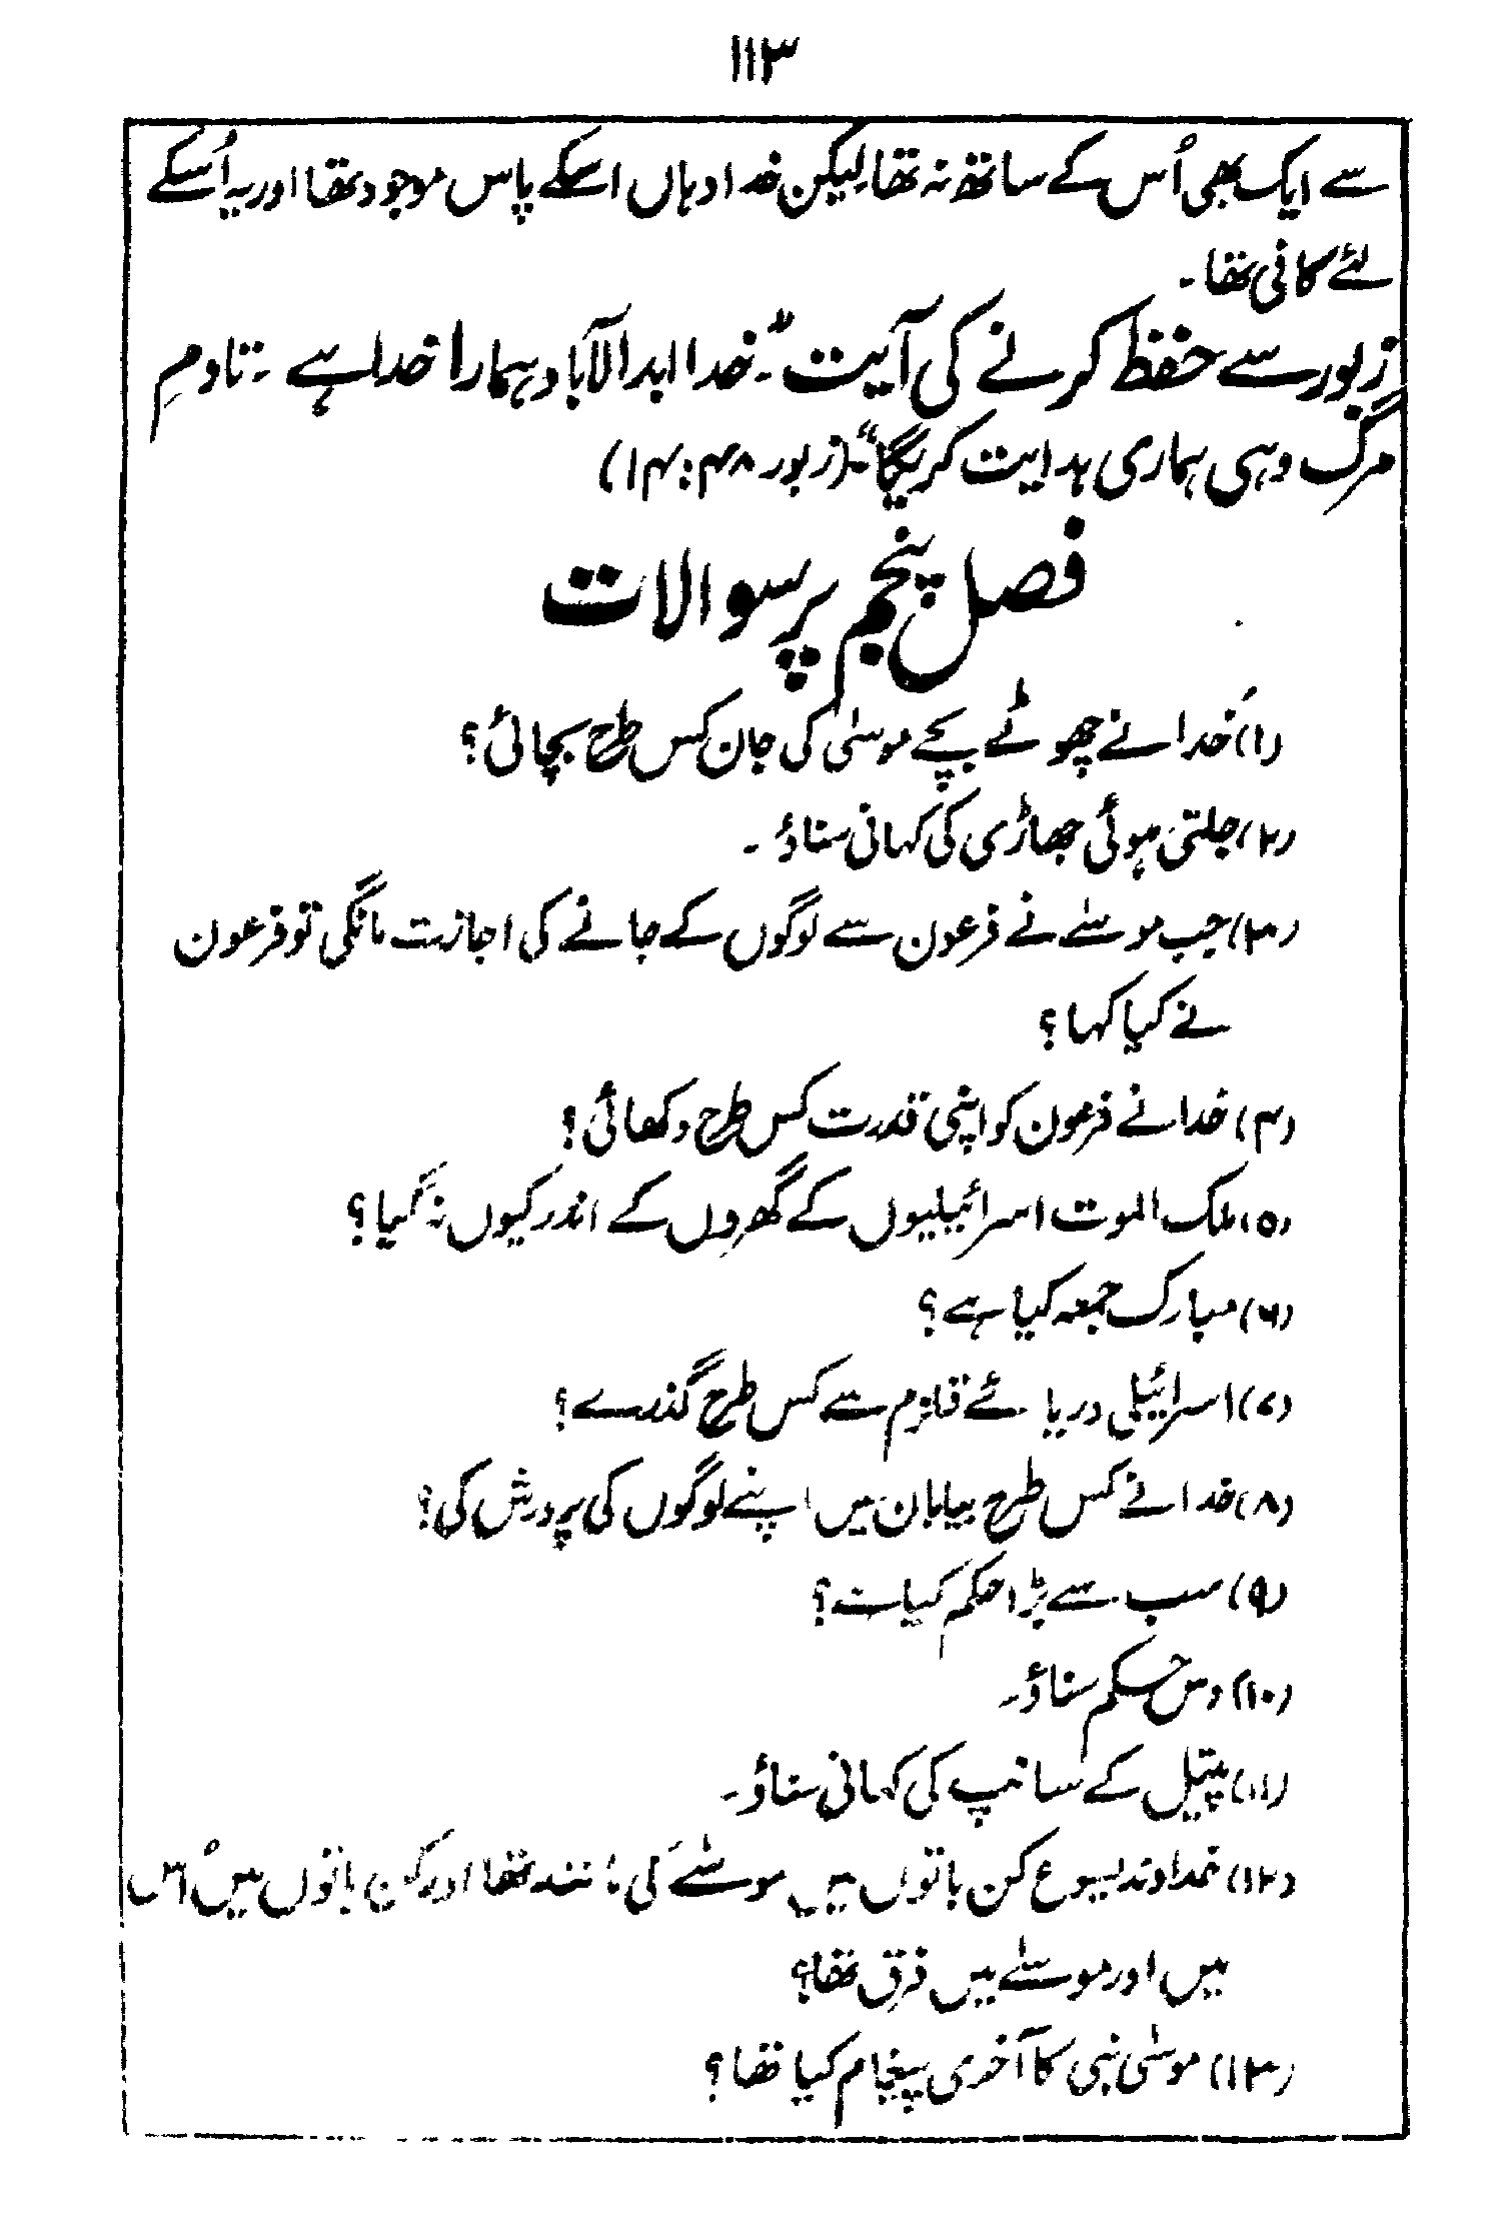 ۱۱۳
سے ایک بھی اُس کے ساتھ نہ تھا۔لیکن خدا وہاں اسکے پاس موجود تھا اور یہ اُسکے
لئے کافی تھا۔
زبور سے حفظ کرنے کی آیت۔ "خدا ابدالآباد ہمارا خدا ہے ۔ تادمِ
مرگ وہی ہماری ہدایت کریگا"۔ (زبور ۴۸:۱۴)
فصل پنجم پر سوالات
(۱) خُدا نے چھوٹے بچے موسیٰ کی جان کس طرح بچائی؟
(۲) جلتی ہوئی جھاڑی کی کہانی سناؤ ۔
(۳) جب موسےٰ نے فرعون سے لوگوں کے جانے کی اجازت مانگی تو فرعون
نے کیا کہا؟
(۴) خدا نے فرعون کو اپنی قدرت کس طرح دکھائی؟
(۵) ملک الموت اسرائیلیوں کے گھروں کے اندر کیوں نہ گیا؟
(۶) مبارک جمعہ کیا ہے؟
(۷) اسرائیلی دریائے قلزم سے کس طرح گذرے؟
(۸) خدا نے کس طرح بیابان میں اپنے لوگوں کی پرورش کی؟
(۹) سب سے بڑا حکم کیا ہے؟
(۱۰) دس حکم سناؤ۔
(۱۱) پیتل کے سانپ کی کہانی سناؤ۔
(۱۲) خداوند یسوع کن باتوں میں موسےٰ کی مانند تھا اور کن باتوں میں اُس
میں اور موسےٰ میں فرق تھا؟
(۱۳) موسیٰ نبی کا آخری پیغام کیا تھا؟